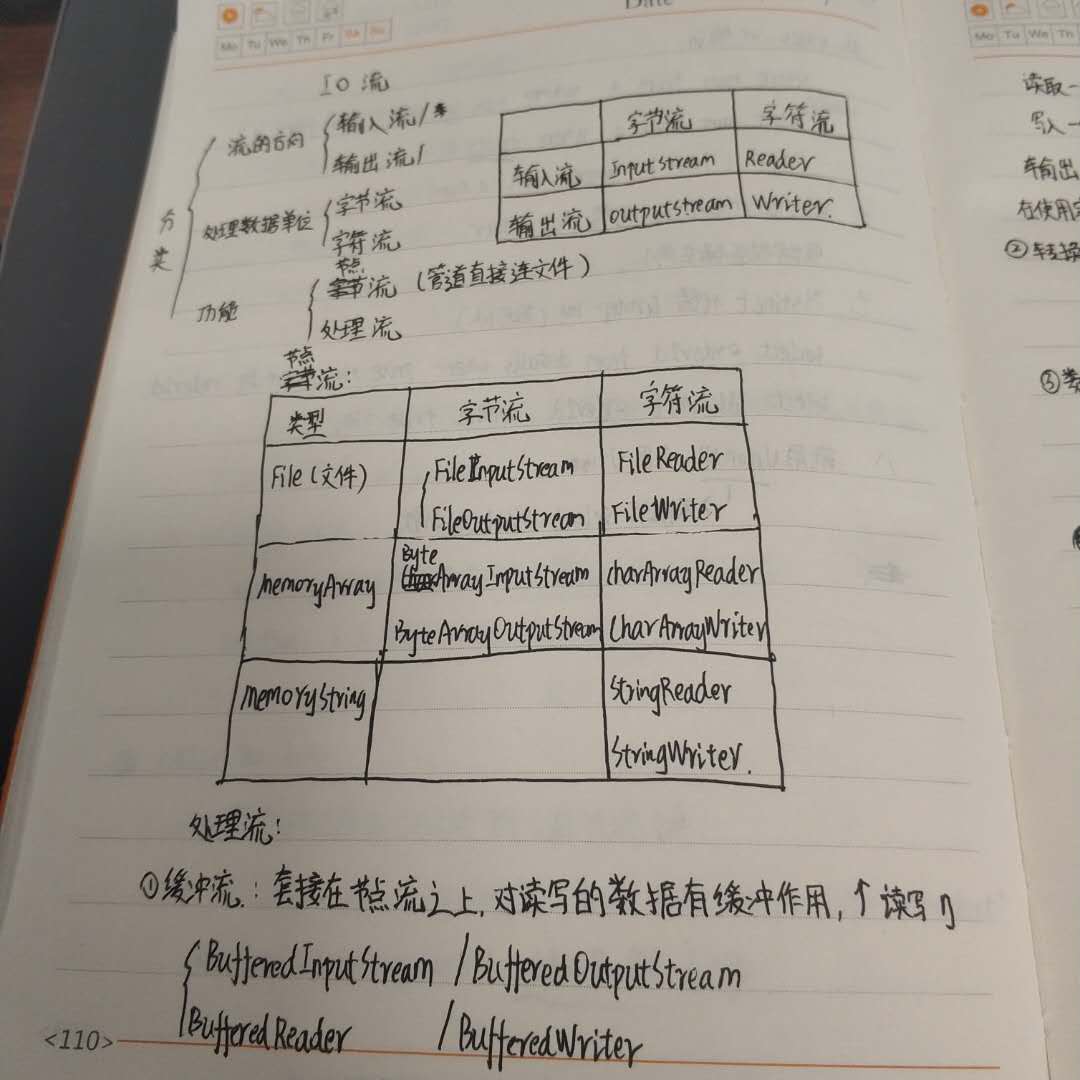 Date
Mo Tu We Th Fr Sa Su
Mo Tu We Th
IO 流
分类
流的方向
输入流/
输出流/
处理数据单位
字节流
字符流
功能
节点流 (管道直接连文件)
处理流
字节流 字符流
输入流 InputStream Reader
输出流 outputstream Writer.
节点流:
类型 字节流 字符流
File (文件) FileInputStream FileReader
FileOutputStream FileWriter
memoryArray ByteArrayInputStream charArrayReader
ByteArrayOutputStream CharArrayWriter
memoryString StringReader
StringWriter.
处理流:
①缓冲流.: 套接在节点流之上, 对读写的数据有缓冲作用, ↑读写
BufferedInputStream /BufferedOutputStream
BufferedReader /BufferedWriter
<110>
读取一
写入一
输出
在使用完
②转换
③